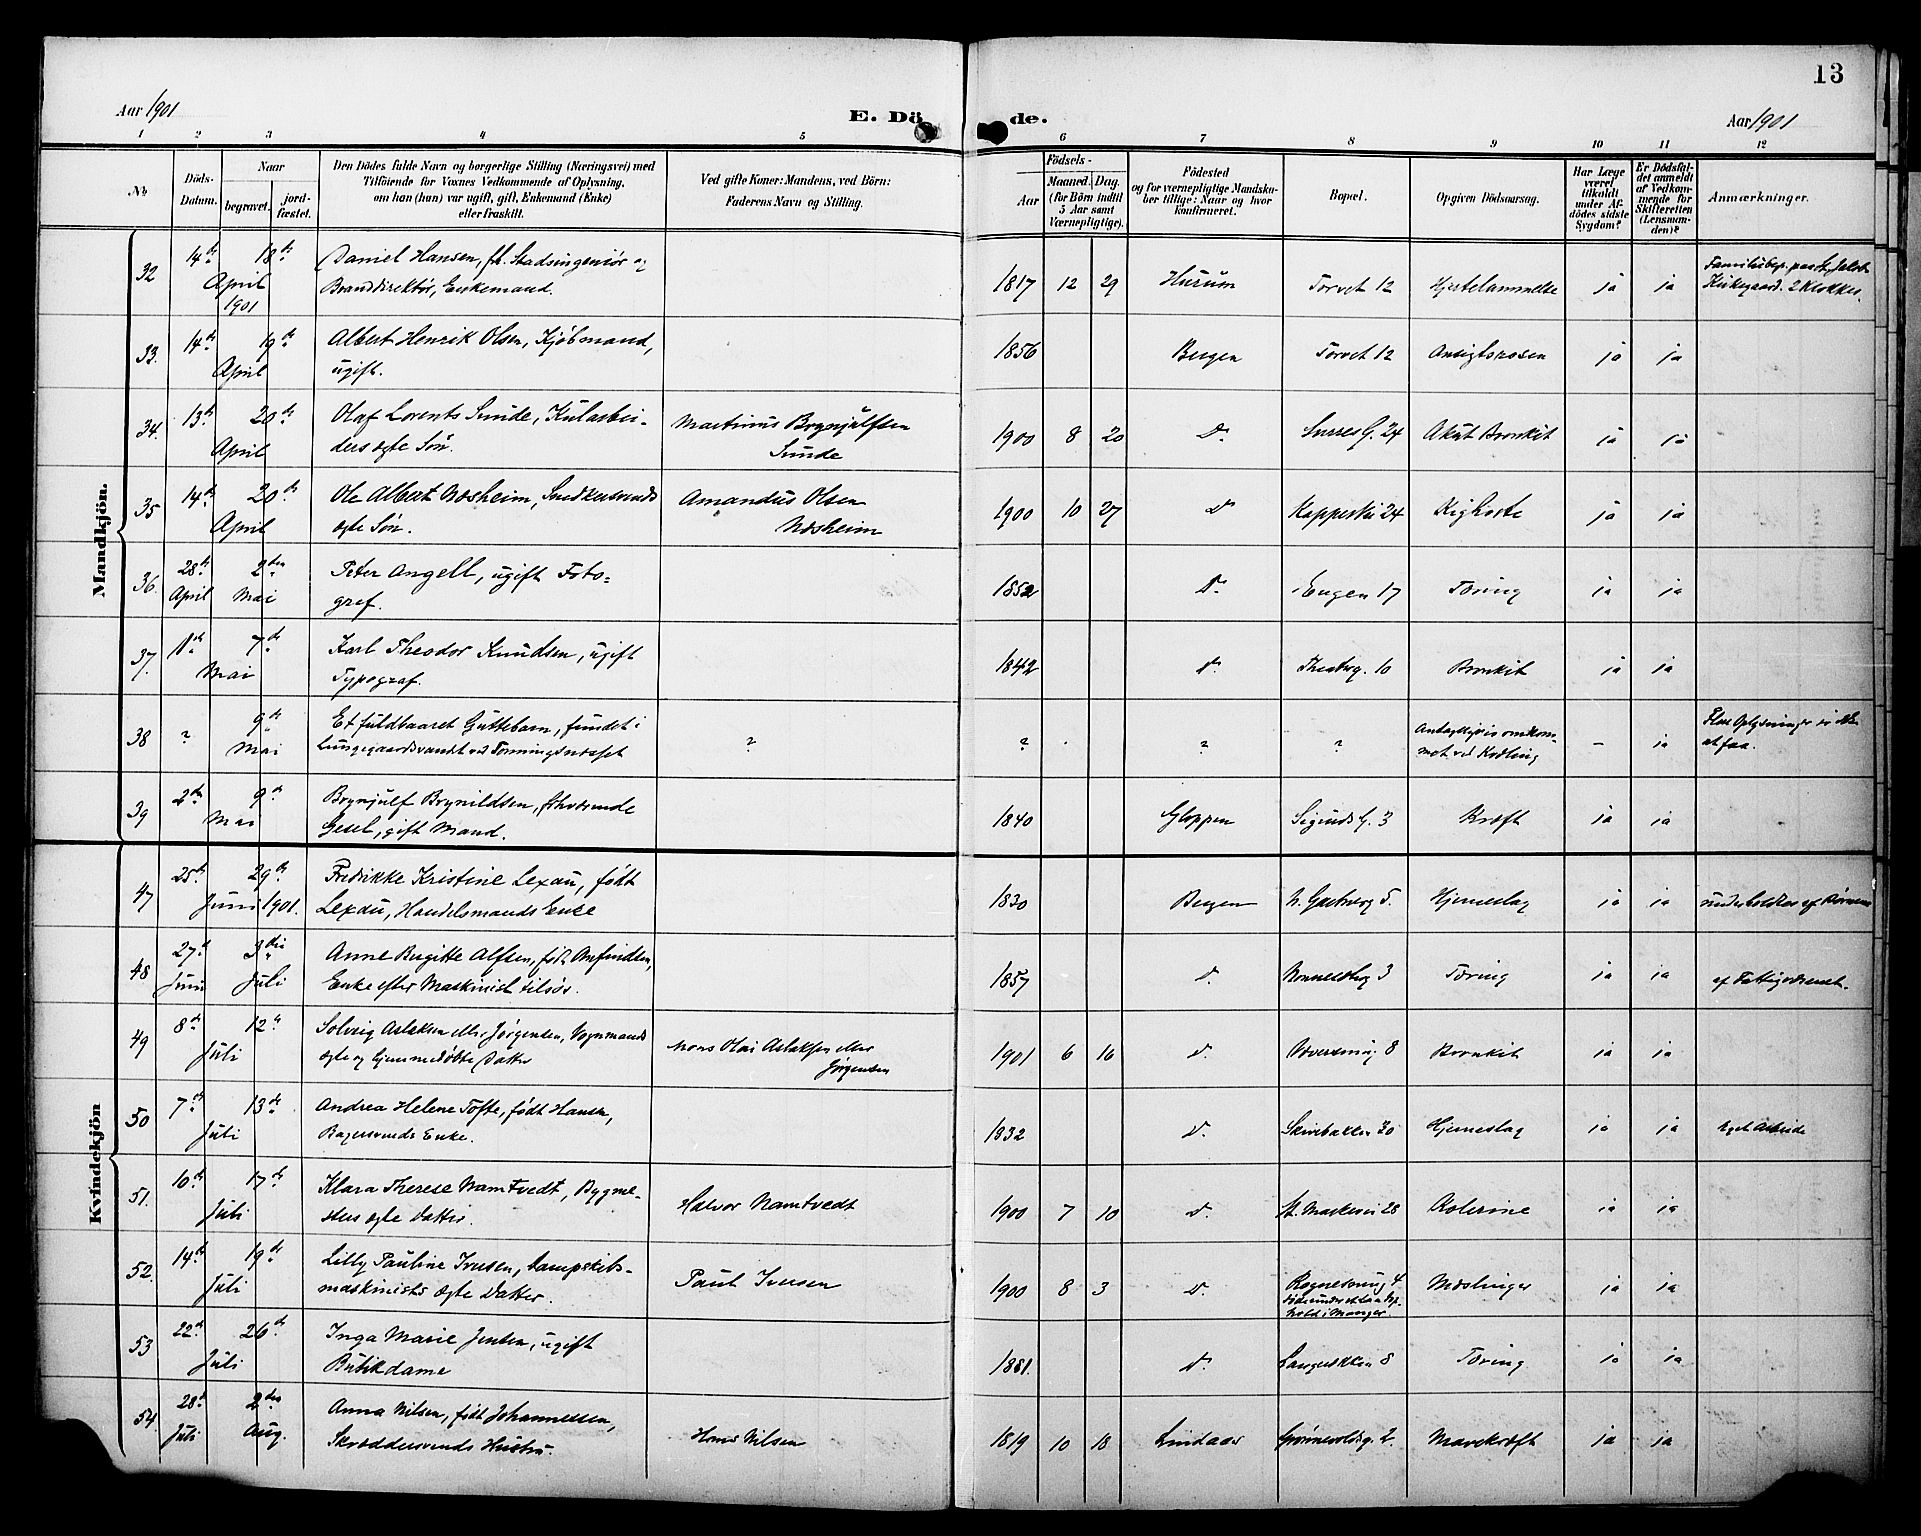 13
Aar 1901
E. Dö de.
Aar 1901
1 2 3 4 5 6 7 8 9 10 11 12
No
Döds-Datum.
Naar
begravet.
jordfæstet.
Den Dödes fulde Navn og borgerlige Stilling (Næringsvei) med
Tilföiende for Voxnes Vedkommende af Oplysning,
om han (hun) var ugift, gift, Enkemand (Enke)
eller fraskilt.
Ved gifte Koner: Mandens, ved Börn:
Faderens Navn og Stilling.
Födsels-
Aar
Maaned. Dag.
(for Börn indtil
5 Aar samt
Værnepligtige).
Födested
og for værnepligtige Mandska-
ber tillige: Naar og hvor
konfirmeret.
Bopæl.
Opgiven Dödsaarsag.
Har Læge
været
tilkaldt
under Af-
dödes sidste
Sygdom?
Er Dödsfal-
det anmeldt
af Vedkom-
mende for
Skifteretten
(Lensman-
den)?
Anmærkninger.
Mandkjön.
32 14de 18de April 1901 Daniel Hansen, fh. Stadsingeniør og
Branddirektør, Enkemand. 1817 12 29 Hurum Torvet 12 Hjertelammelse ja ja
Kirkegaard. 2 Klokker.
33. 14de 19de April Albert Henrik Olsen, Kjøbmand,
ugift. 1856 Bergen Torvet 12 Ansigtsrosen ja ja
34. 13de 20de April Olaf Lorents Sunde, Kularbei-
ders ægte Søn. Martinus Brynjulfsen
Sunde 1900 8 20 Do. 24 Akut Bronkit ja ja
35 14de 20de April Ole Albert Næsheim, Snedkersvends
ægte Søn. Amandus Olsen
Næsheim 1900 10 27 Do. 24 Kighoste ja ja
36. 28de April 2den Mai Peter Angell, ugift Foto-
graf. 1852 Do. Engen 17 Tæring ja ja
37. 1ste 7de Mai Karl Theodor Knudsen, ugift
Typograf. 1842 Do. Theaterg. 10 Bronkit ja ja
38 ? 9de Mai Et fuldbaaret Guttebarn, fundet i
Lungegaardsvandet ved ? ? ? ? Antageligvis omkom-
met ved Kvælning – ja Flere Oplysninger ei
at faa.
39 2den 9de Mai Brynjulf Brynildsen, fhværende
Gesel, gift Mand. 1840 Gloppen Sigurds G. 3 Kræft ja ja
Kvindekjön
47 25de 29de Juni 1901. Fredrikke Kristine Lexau, født
Lexau, Handelsmands Enke 1830 Bergen 5. Hjerneslag ja ja underholdtes af Børnene
48 27de Juni 3die Juli Anne Birgitte Alfsen, født Arnfindsen,
Enke efter Maskinist tilsøs. 1857 Do. 3 Tæring ja ja af Fattigvæsenet.
49 8de 12te Juli Solveig Aslaksen eller Jørgensen, Vognmands
ægte og hjemmedøbte Datter Mons Olai Aslaksen eller
Jørgensen 1901 6 16 Do. 8 Bronkit ja ja
50 7de 13de Juli Andrea Helene Tofte, født Hansen,
Bagersvends Enke. 1832 Do. Skivebakken 30 Hjerneslag ja ja eget Arbeide
51. 10de 17de Juli Klara Therese Namtvedt, Bygme-
sters ægte Datter. Halvor Namtvedt 1900 7 10 Do. St. Markevei 28 Kolerine ja ja
52. 14de 19de Juli Lilly Pauline Iversen, Dampskibs-
maskinists ægte Datter. Paul Iversen 1900 8 3 Do. 4
Manger Mæslinger ja ja
53 22de 26de Juli Inga Marie Jensen, ugift
Butikdame 1881. Do. 8 Tæring ja ja
54. 28de Juli 2den Aug. Anna Nilsen, født Johannessen,
Skræddersvends Hustru. Hans Nilsen 1819 10 18 Lindaas Grønnevoldsg. 2. Mavekræft ja ja